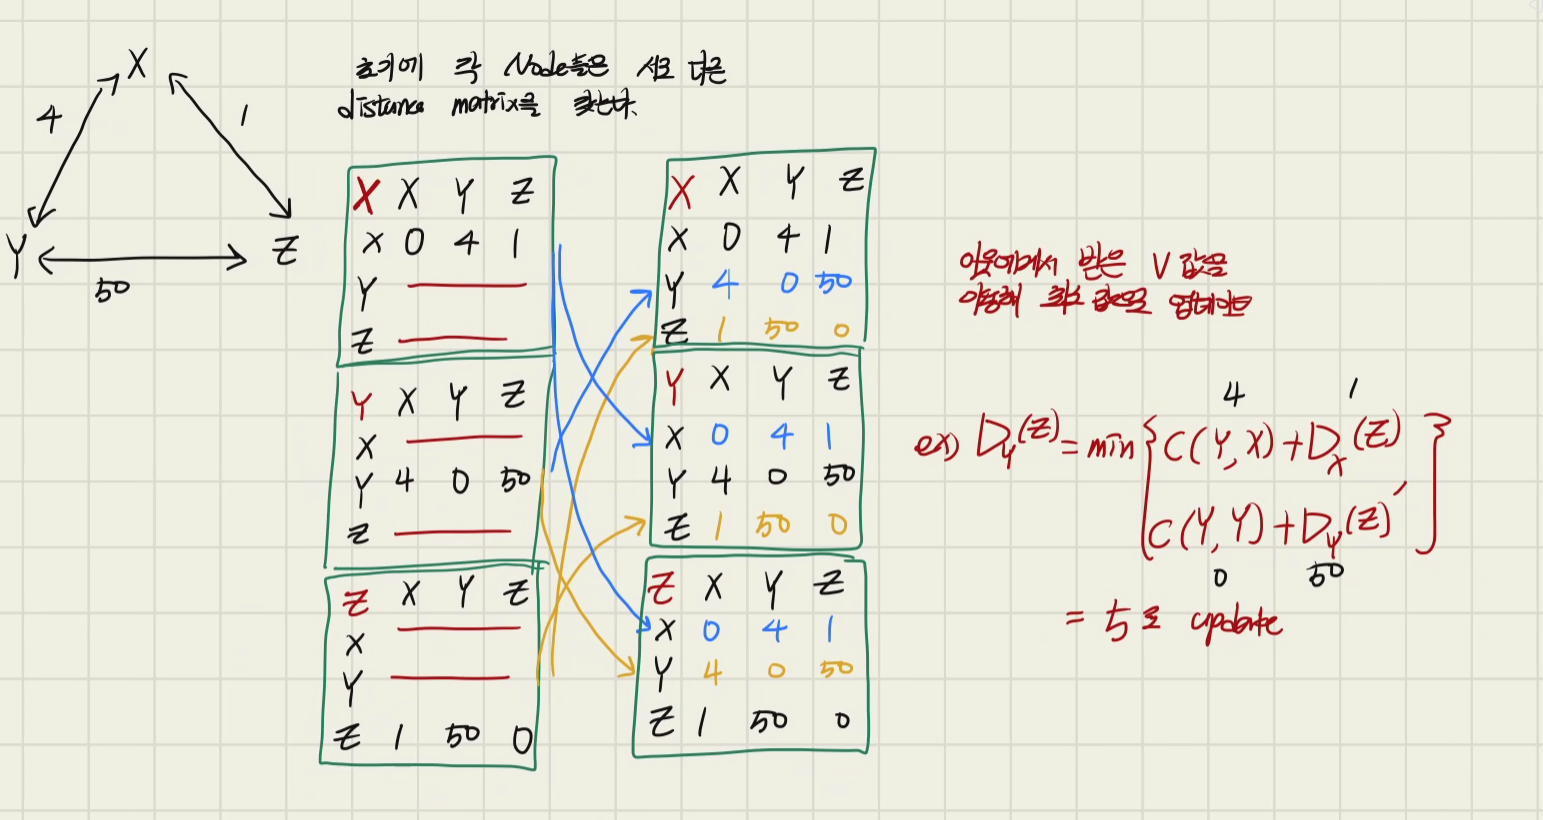 X
4
1
Y
Z
50
초기에 각 Node들은 서로 다른
distance matrix를 갖는다.
X X Y Z
X 0 4 1
Y
Z
Y X Y Z
X
Y 4 0 50
Z
Z X Y Z
X
Y
Z 1 50 0
X X Y Z
X 0 4 1
Y 4 0 50
Z 1 50 0
Y X Y Z
X 0 4 1
Y 4 0 50
Z 1 50 0
Z X Y Z
X 0 4 1
Y 4 0 50
Z 1 50 0
이웃에게서 받은 V 값을
이용해 최소 값으로 업데이트
4 1
ex) D_Y(Z) = min { C(Y,X) + D_X(Z),
C(Y,Y) + D_Y(Z) }
0 50
= 5로 update